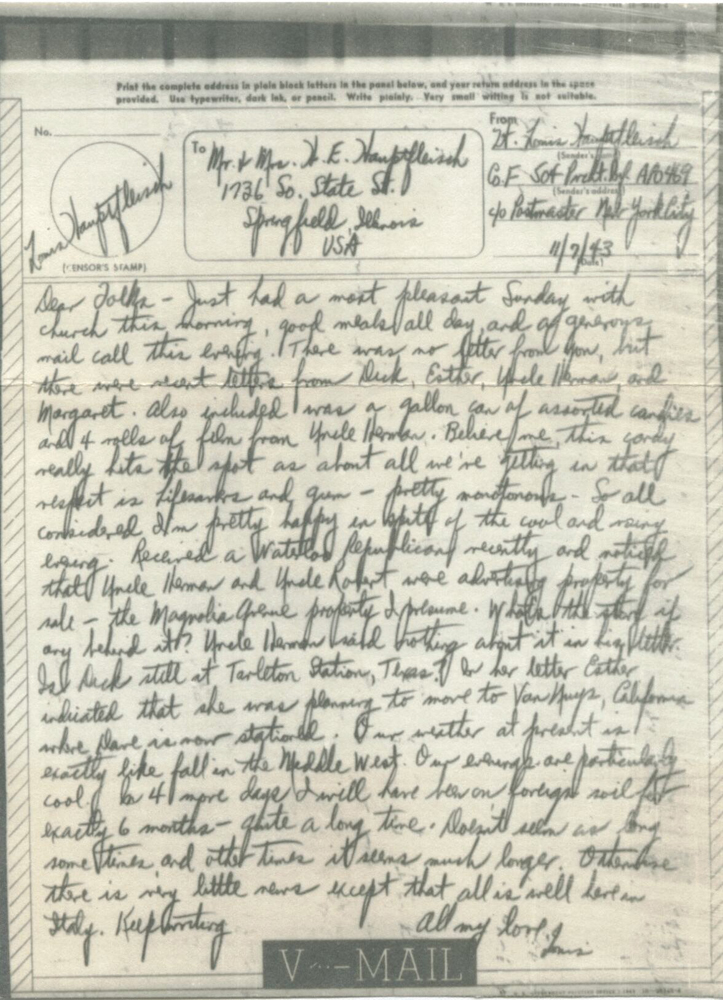 Print the complete address in plain block letters in the panel below, and your return address in the space
provided. Use typewriter, dark ink, or pencil. Write plainly. Very small writing is not suitable.
No.
To
From
Mr. & Mrs. H. E. Hauptfleisch
1736 So. State St.
Springfield, Illinois
USA
Lt. Louis Hauptfleisch
(Sender's name)
Co. F 504 Pracht. Inf. APO 469
(Sender's address)
c/o Postmaster New York City
11/7/43
(Date)
Louis Hauptfleisch
(CENSOR'S STAMP)
Dear Folks - Just had a most pleasant Sunday with
church this morning, good meals all day, and a generous
mail call this evening. There was no letter from you, but
there were recent letters from Dick, Esther, Uncle Herman and
Margaret. Also included was a gallon can of assorted candies
and 4 rolls of film from Uncle Herman. Believe me, this candy
really hits the spot as about all we're getting in that
respect is lifesavers and gum - pretty monotonous - So all
considered I'm pretty happy in spite of the cool and rainy
evening. Received a Waterloo Republican recently and noticed
that Uncle Herman and Uncle Robert were advertising property for
sale - the Magnolia Avenue property I presume. What's the story if
any behind it? Uncle Herman said nothing about it in his letter.
Is Dick still at Tarleton Station, Texas? In her letter Esther
indicated that she was planning to move to Van Nuys, California
where Dave is now stationed. Our weather at present is
exactly like fall in the Middle West. Our evenings are particularly
cool. In 4 more days I will have been on foreign soil for
exactly 6 months - quite a long time. Doesn't seem as long
some times and other times it seems much longer. Otherwise
there is very little news except that all is well here in
Italy. Keep writing
All my love,
Louis
V···-MAIL